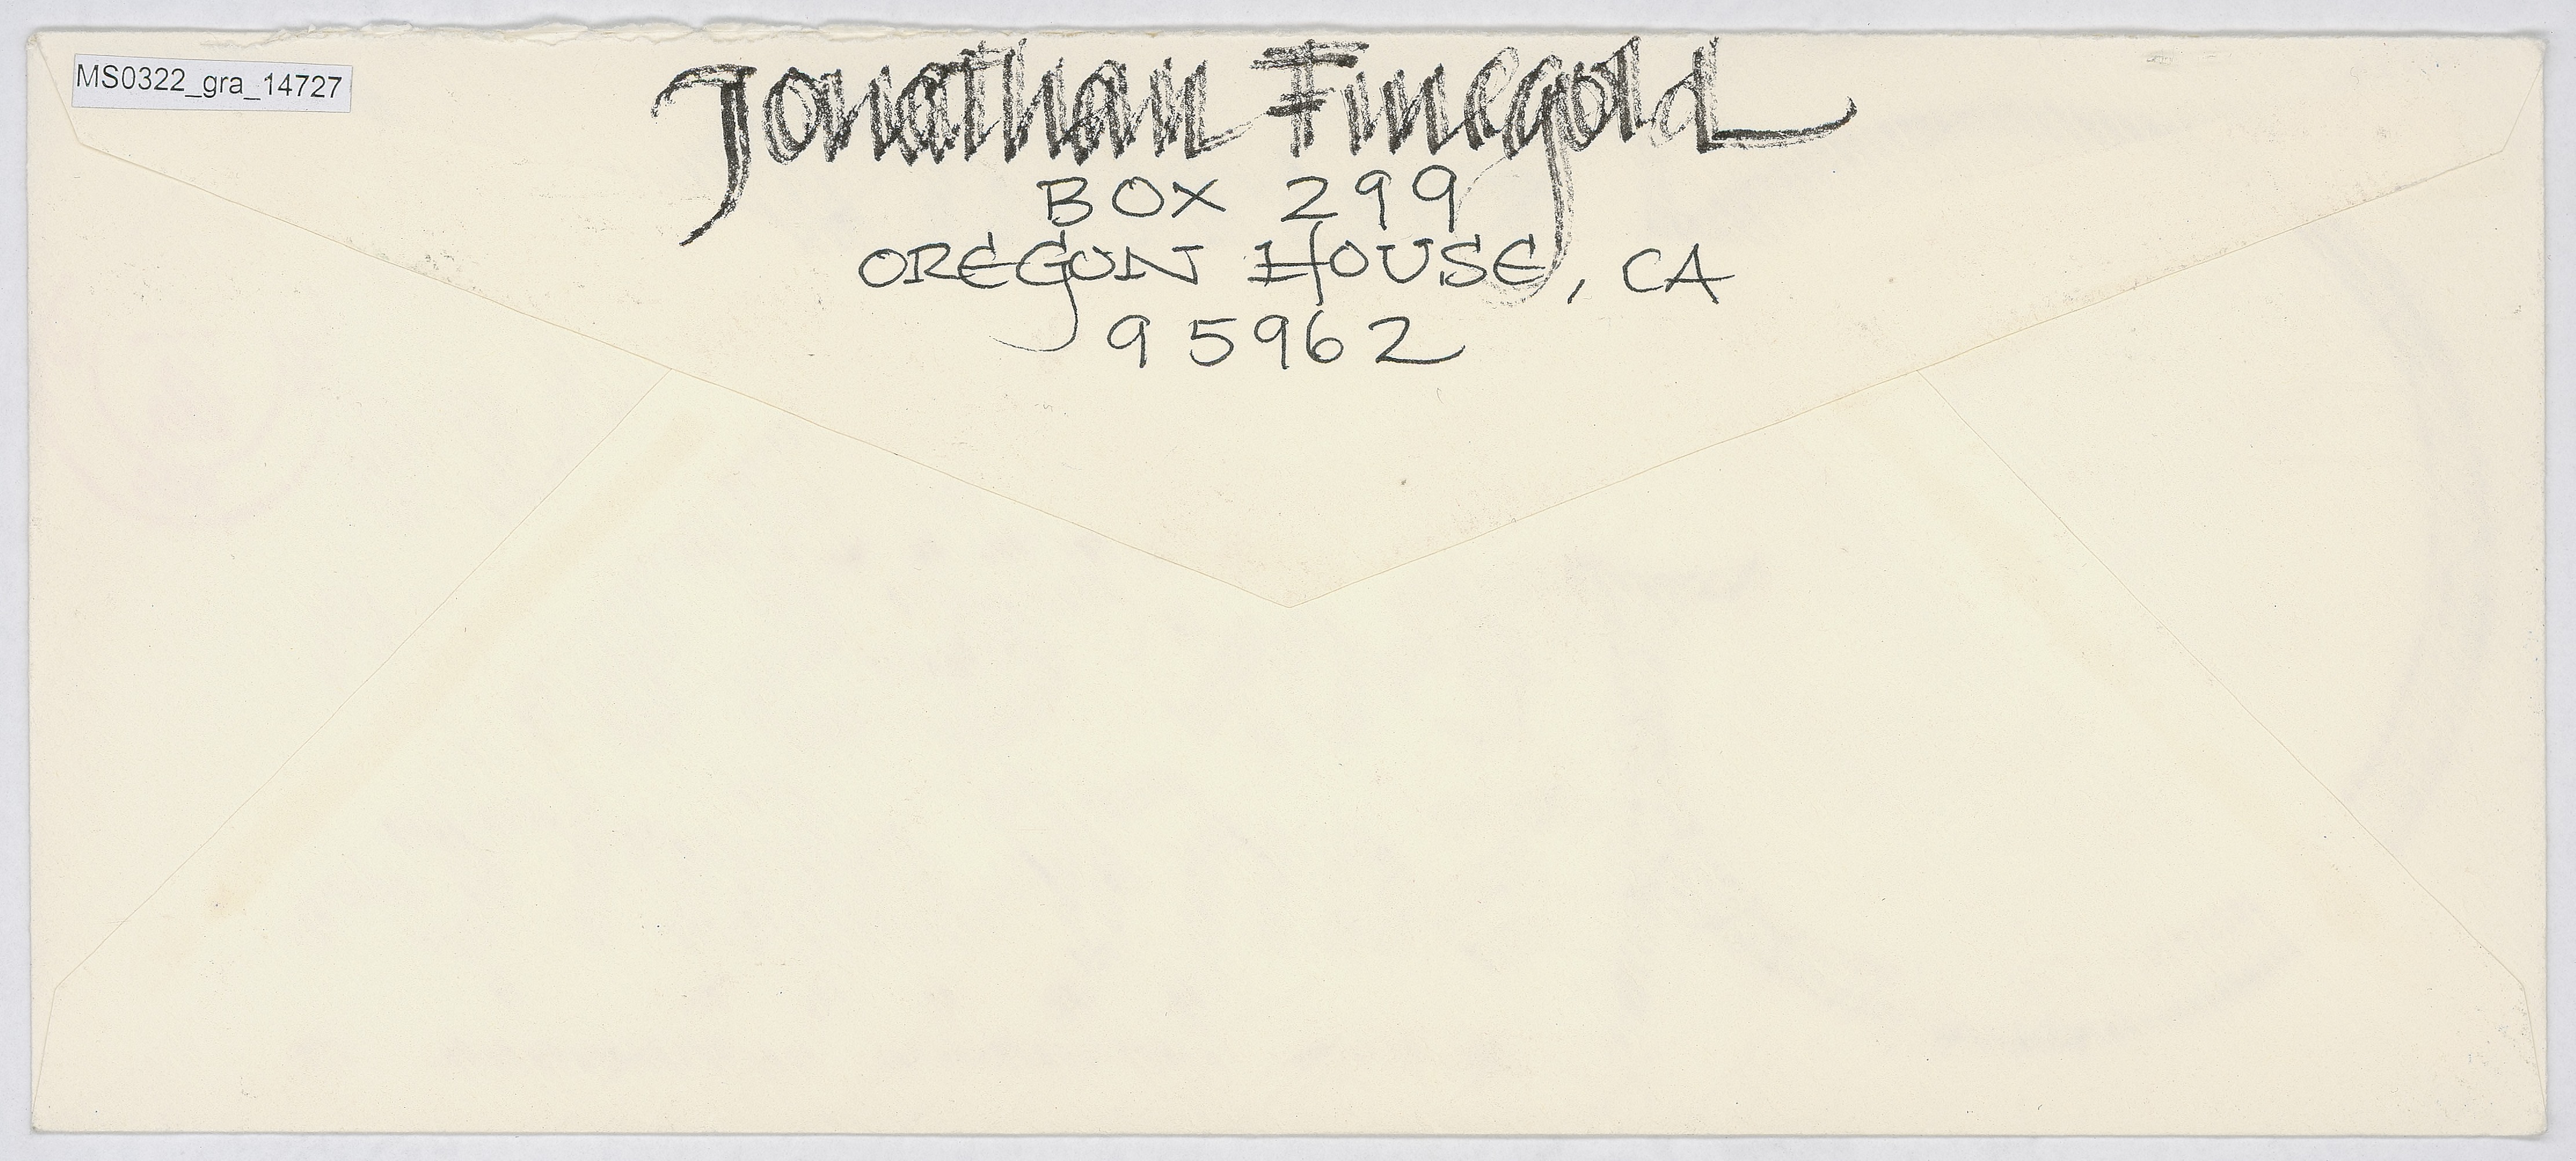 MS0322_gra_14727
Jonathan Finegold
BOX 299
OREGON HOUSE, CA
95962